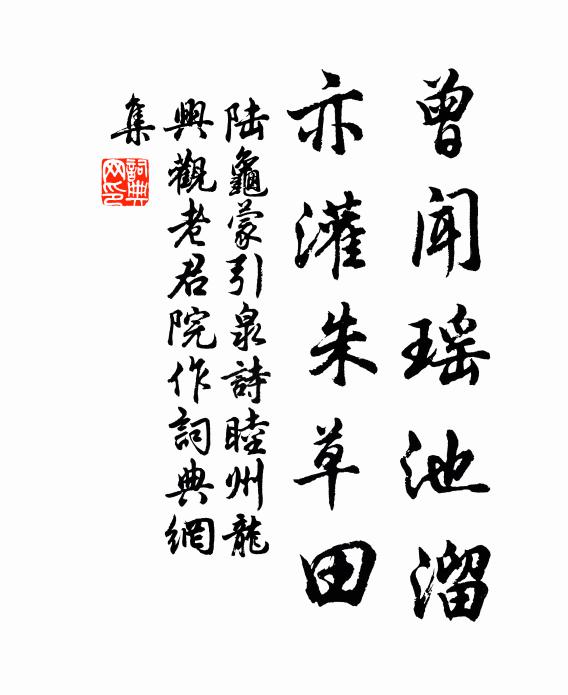 曾闻瑶池溜
亦灌朱草田
陆龜蒙引泉詩睦州龍
興觀老君院作詞典網
集
詞典网印